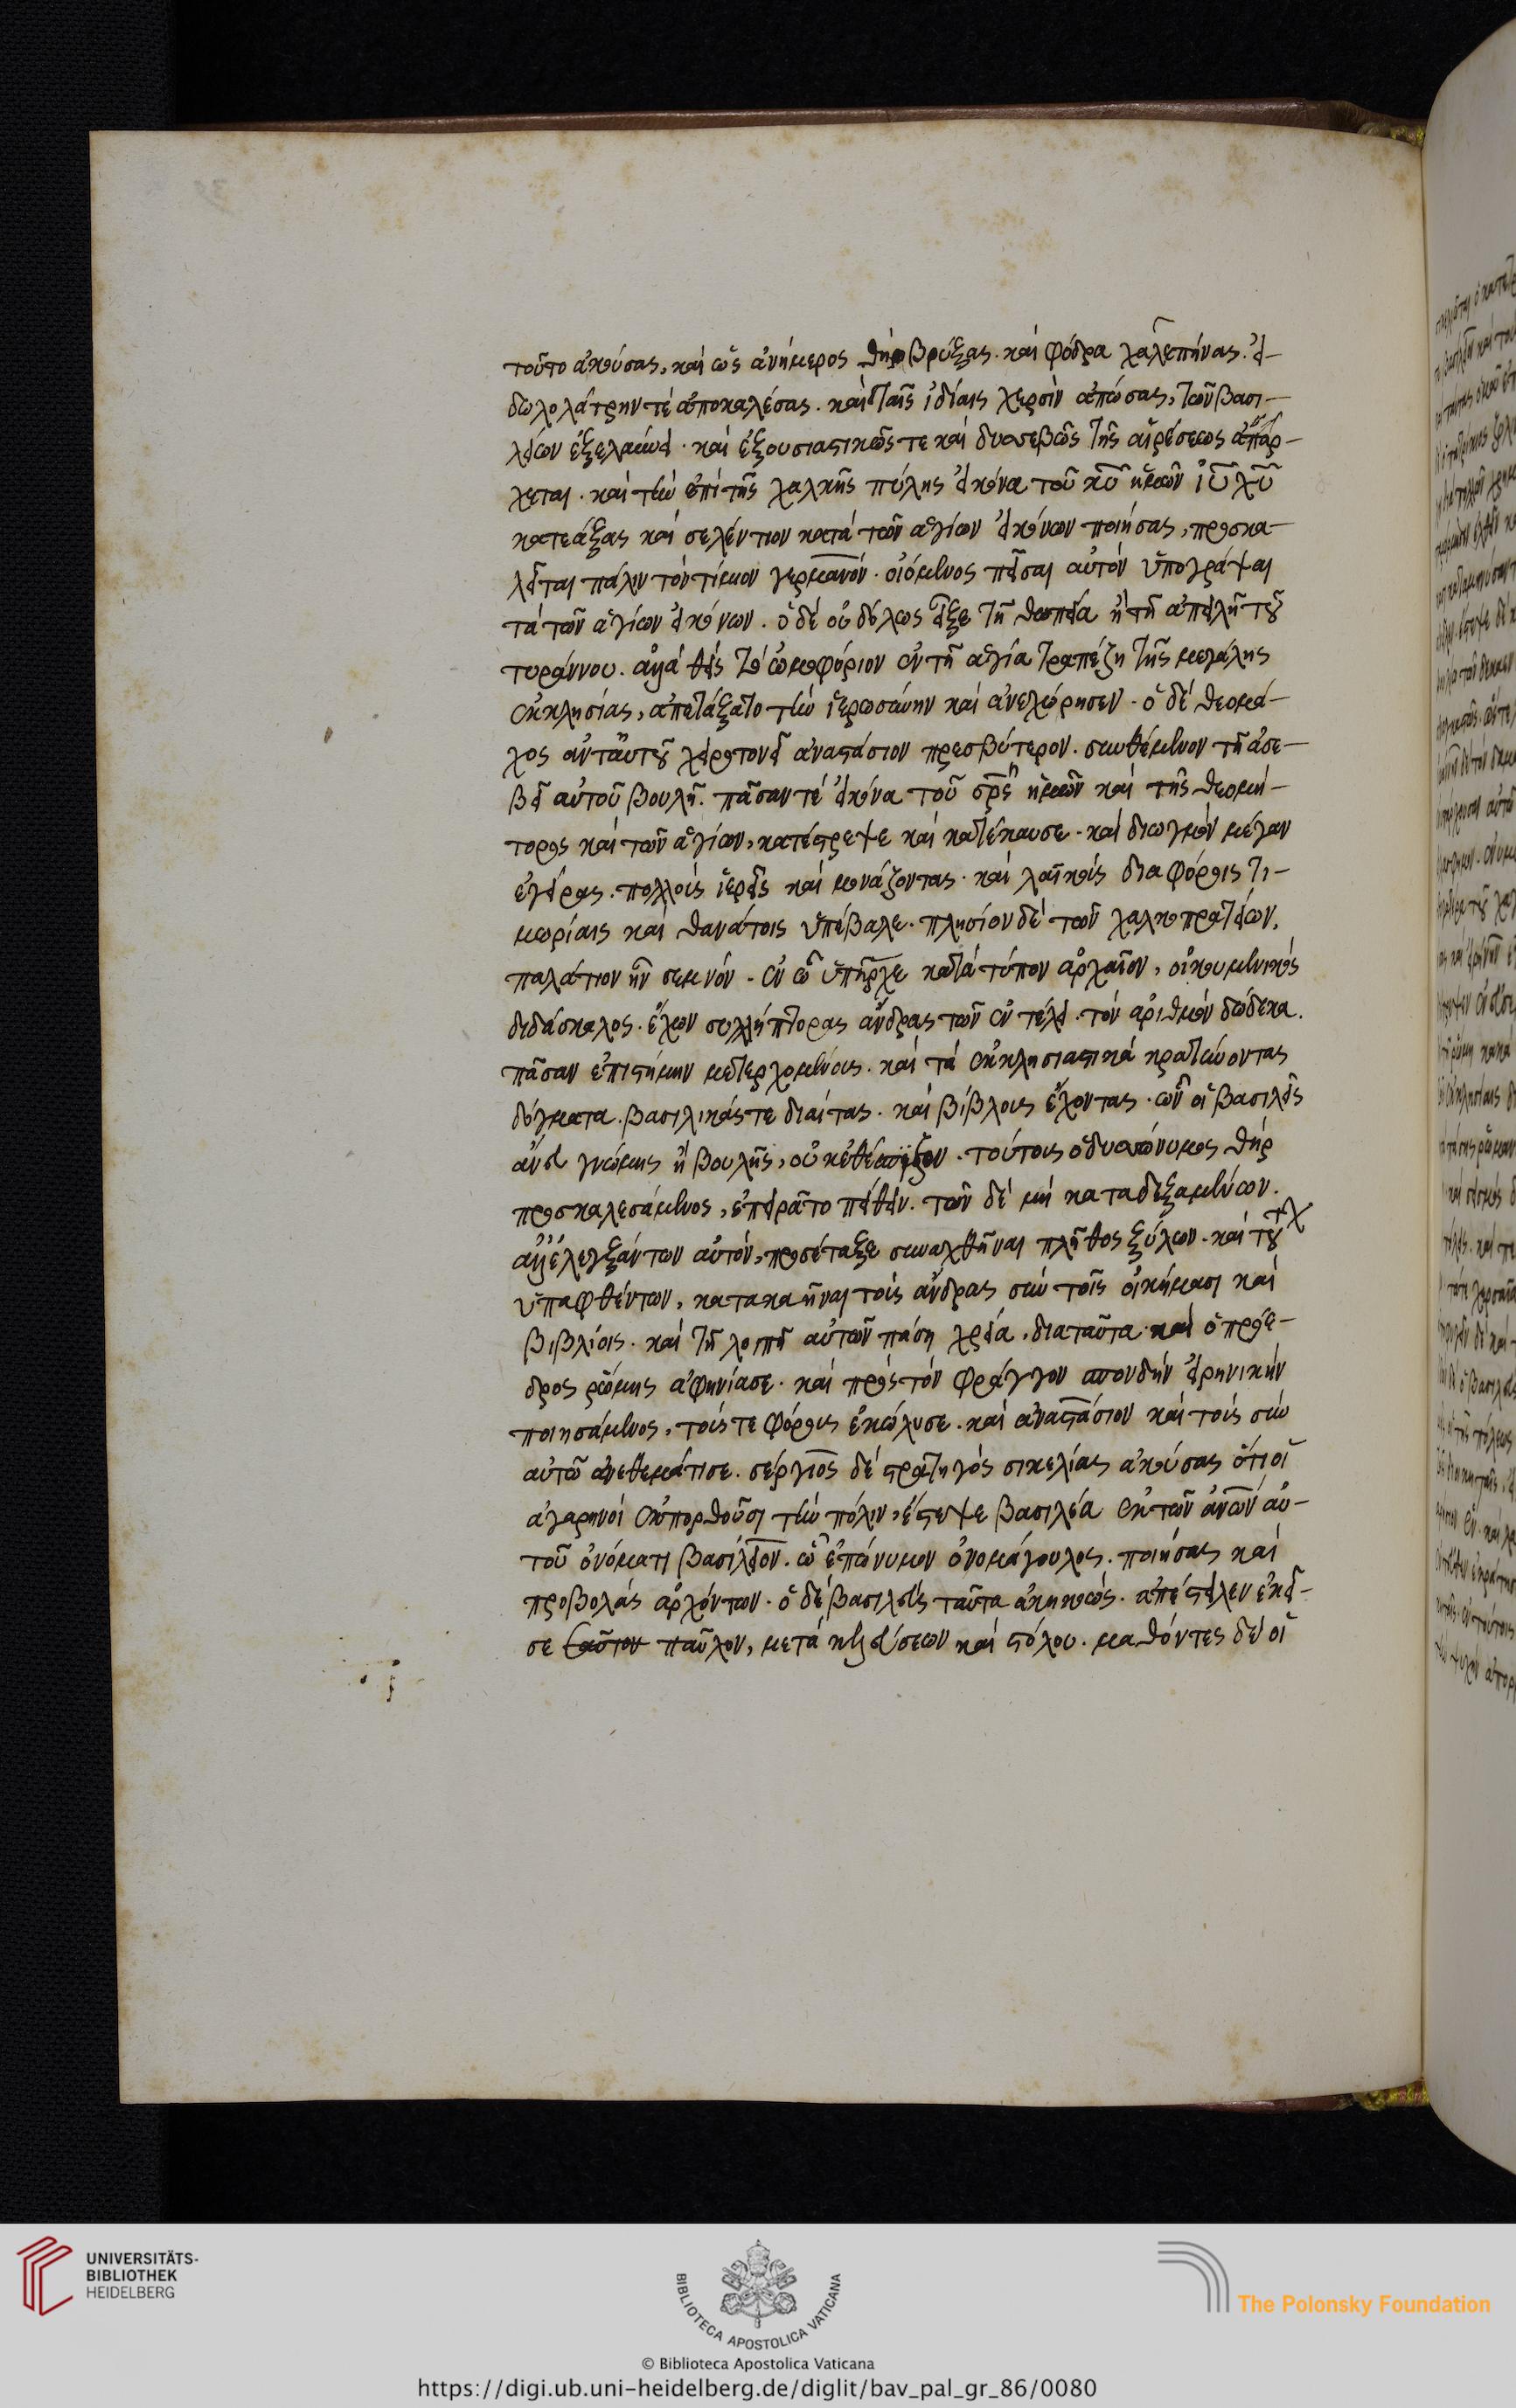 τοῦτο ἀκούσας, καὶ ὡς ἀνήμερος θὴρ βρύξας. καὶ σφόδρα χαλεπήνας. εἰ-
δωλολάτρην τὲ ἀποκαλέσας. καὶ ταῖς ἰδίαις χερσὶν ἀπώσας, τῶν βασι-
λείων ἐξελαύνει. καὶ ἐξουσιαστικῶς τε καὶ δυσσεβῶς τῆς αἱρέσεως ἀπάρ-
χεται. καὶ τὴν ἐπὶ τῆς χαλκῆς πύλης εἰκόνα τοῦ κυ ἡμῶν ιυ χυ
κατεάξας καὶ σελέντιον κατὰ τῶν ἁγίων εἰκόνων ποιήσας, προσκα-
λεῖται πάλιν τὸν τίμιον γερμανόν. οἰόμενος πεῖσαι αὐτὸν ὑπογράψαι
τὰ τῶν ἁγίων εἰκόνων. ὁ δὲ οὐδόλως εἶξε τῆ θωπεία ἢ τῆ ἀπειλῆ τοῦ
τυράννου. ἀλλὰ θεὶς τὸ ὠμοφόριον ἐν τῆ ἁγία τραπέζη τῆς μεγάλης
ἐκκλησίας, ἀπετάξατο τὴν ἱερωσύνην καὶ ἀνεχώρησεν. ὁ δὲ θεομά-
χος ἀντ' αὐτοῦ χειροτονεῖ ἀναστάσιον πρεσβύτερον. συνθέμενον τῆ ἀσε-
βεῖ αὐτοῦ βουλῆ. πᾶσαν τὲ εἰκόνα τοῦ σρς ἡμῶν καὶ τῆς θεομή-
τορος καὶ τῶν ἁγίων, κατέστρεψε καὶ κατέκαυσε. καὶ διωγμὸν μέγαν
ἐγείρας. πολλοὺς ἱερεῖς καὶ μονάζοντας. καὶ λαϊκοὺς διαφόροις τι-
μωρίαις καὶ θανάτοις ὑπέβαλε. πλησίον δὲ τῶν χαλκοπρατείων,
παλάτιον ἦν σεμνόν. ἐν ὧ ὑπῆρχε κατὰ τύπον ἀρχαῖον, οἰκουμενικὸς
διδάσκαλος. ἔχων συλλήπτορας ἄνδρας τῶν ἐν τέλει. τὸν ἀριθμὸν δώδεκα.
πᾶσαν ἐπιστήμην μετερχομένους. καὶ τὰ ἐκκλησιαστικὰ κρατύνοντας
δόγματα. βασιλικάς τε διαίτας. καὶ βίβλους ἔχοντας. ὧν οἱ βασιλεῖς
ἄνευ γνώμης ἢ βουλῆς, οὐκ ἐθέσπιζον. τούτους ὁ δυσώνυμος θὴρ
προσκαλεσάμενος, ἐπειρᾶτο πείθειν. τῶν δὲ μὴ καταδεξαμένων.
ἀλλ' ἐλεγξάντων αὐτόν, προσέταξε συναχθῆναι πλῆθος ξύλων. καὶ τοῦ
ὑπαφθέντων, κατακαῆναι τοὺς ἄνδρας σὺν τοῖς οἰκήμασι καὶ
βιβλίοις. καὶ τῆ λοιπῆ αὐτῶν πάση χρεία. διαταῦτα καὶ ὁ πρόε-
δρος ῥώμης ἀφηνίασε. καὶ πρὸς τὸν φράγγον σπονδὴν εἰρηνικὴν
ποιησάμενος, τούς τε φόρους ἐκώλυσε. καὶ ἀναστάσιον καὶ τοὺς σὺν
αὐτῶ ἀνεθεμάτισε. σέργιος δὲ στρατηγὸς σικελίας ἀκούσας ὅτι οἱ
ἀγαρηνοὶ ἐκπορθοῦσι τὴν πόλιν, ἔστεψε βασιλέα ἐκ τῶν ἀνων αὐ-
τοῦ ὀνόματι βασίλειον. ὧ ἐπώνυμον ὀνομάγουλος. ποιήσας καὶ
προβολὰς ἀρχόντων. ὁ δὲ βασιλεὺς ταῦτα ἀκηκοώς. ἀπέστειλεν ἐκεῖ-
σε παῦλον, μετὰ κελεύσεων καὶ στόλου. μαθόντες δὲ οἱ
UNIVERSITÄTS-
BIBLIOTHEK
HEIDELBERG
BIBLIOTECA APOSTOLICA VATICANA
The Polonsky Foundation
© Biblioteca Apostolica Vaticana
https://digi.ub.uni-heidelberg.de/diglit/bav_pal_gr_86/0080